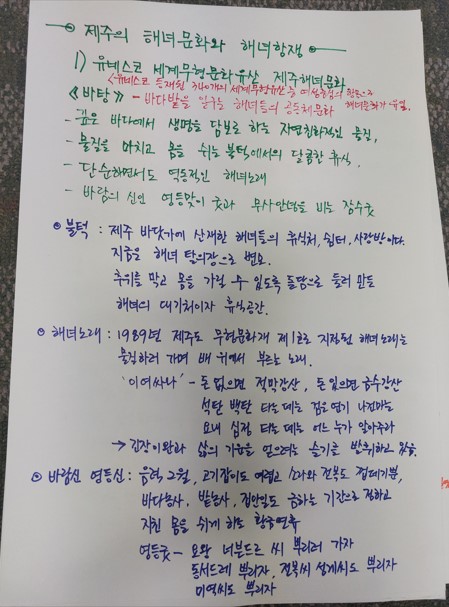 제주의 해녀문화와 해녀항쟁
1) 유네스코 세계무형문화유산 제주해녀문화
<유네스코 등재된 340개의 세계무형유산 중 여성중심의 활동으로
해녀문화가 유일.
《바탕》 - 바다밭을 일구는 해녀들의 공동체문화
- 깊은 바다에서 생명을 담보로 하는 자연친화적인 물질,
- 물질을 마치고 몸을 쉬는 불턱에서의 달콤한 휴식.
- 단순하면서도 역동적인 해녀노래
- 바람의 신인 영등맞이 굿과 무사안녕을 비는 잠수굿
⊙ 불턱 : 제주 바닷가에 산재한 해녀들의 휴식처, 쉼터, 사랑방이다.
지금은 해녀 탈의장으로 변모.
추위를 막고 몸을 가릴 수 있도록 돌담으로 둘러 만든
해녀의 대기처이자 휴식공간.
⊙ 해녀노래 : 1989년 제주도 무형문화재 제1호로 지정된 해녀노래는
물질하러 가며 배 위에서 부르는 노래.
'이여싸나' - 돈 없으면 적막강산, 돈 있으면 금수강산
석탄 백탄 타는데는 검은연기 나건마는
요내 심정 타는데는 어느 누가 알아주랴
→ 긴장이완과 삶의 기운을 얻으려는 슬기를 반영하고 있음.
⊙ 바람신 영등신 : 음력 2월, 고기잡이도 어렵고 소라와 전복도 껍데기뿐,
바다농사, 밭농사, 집안일도 금하는 기간으로 정하고
지친 몸을 쉬게 하는 황금연휴
영등굿 - 요왕 너븐드르 씨 뿌리러 가자
동서드레 뿌리자, 전복씨 성게씨도 뿌리자
미역씨도 뿌리자